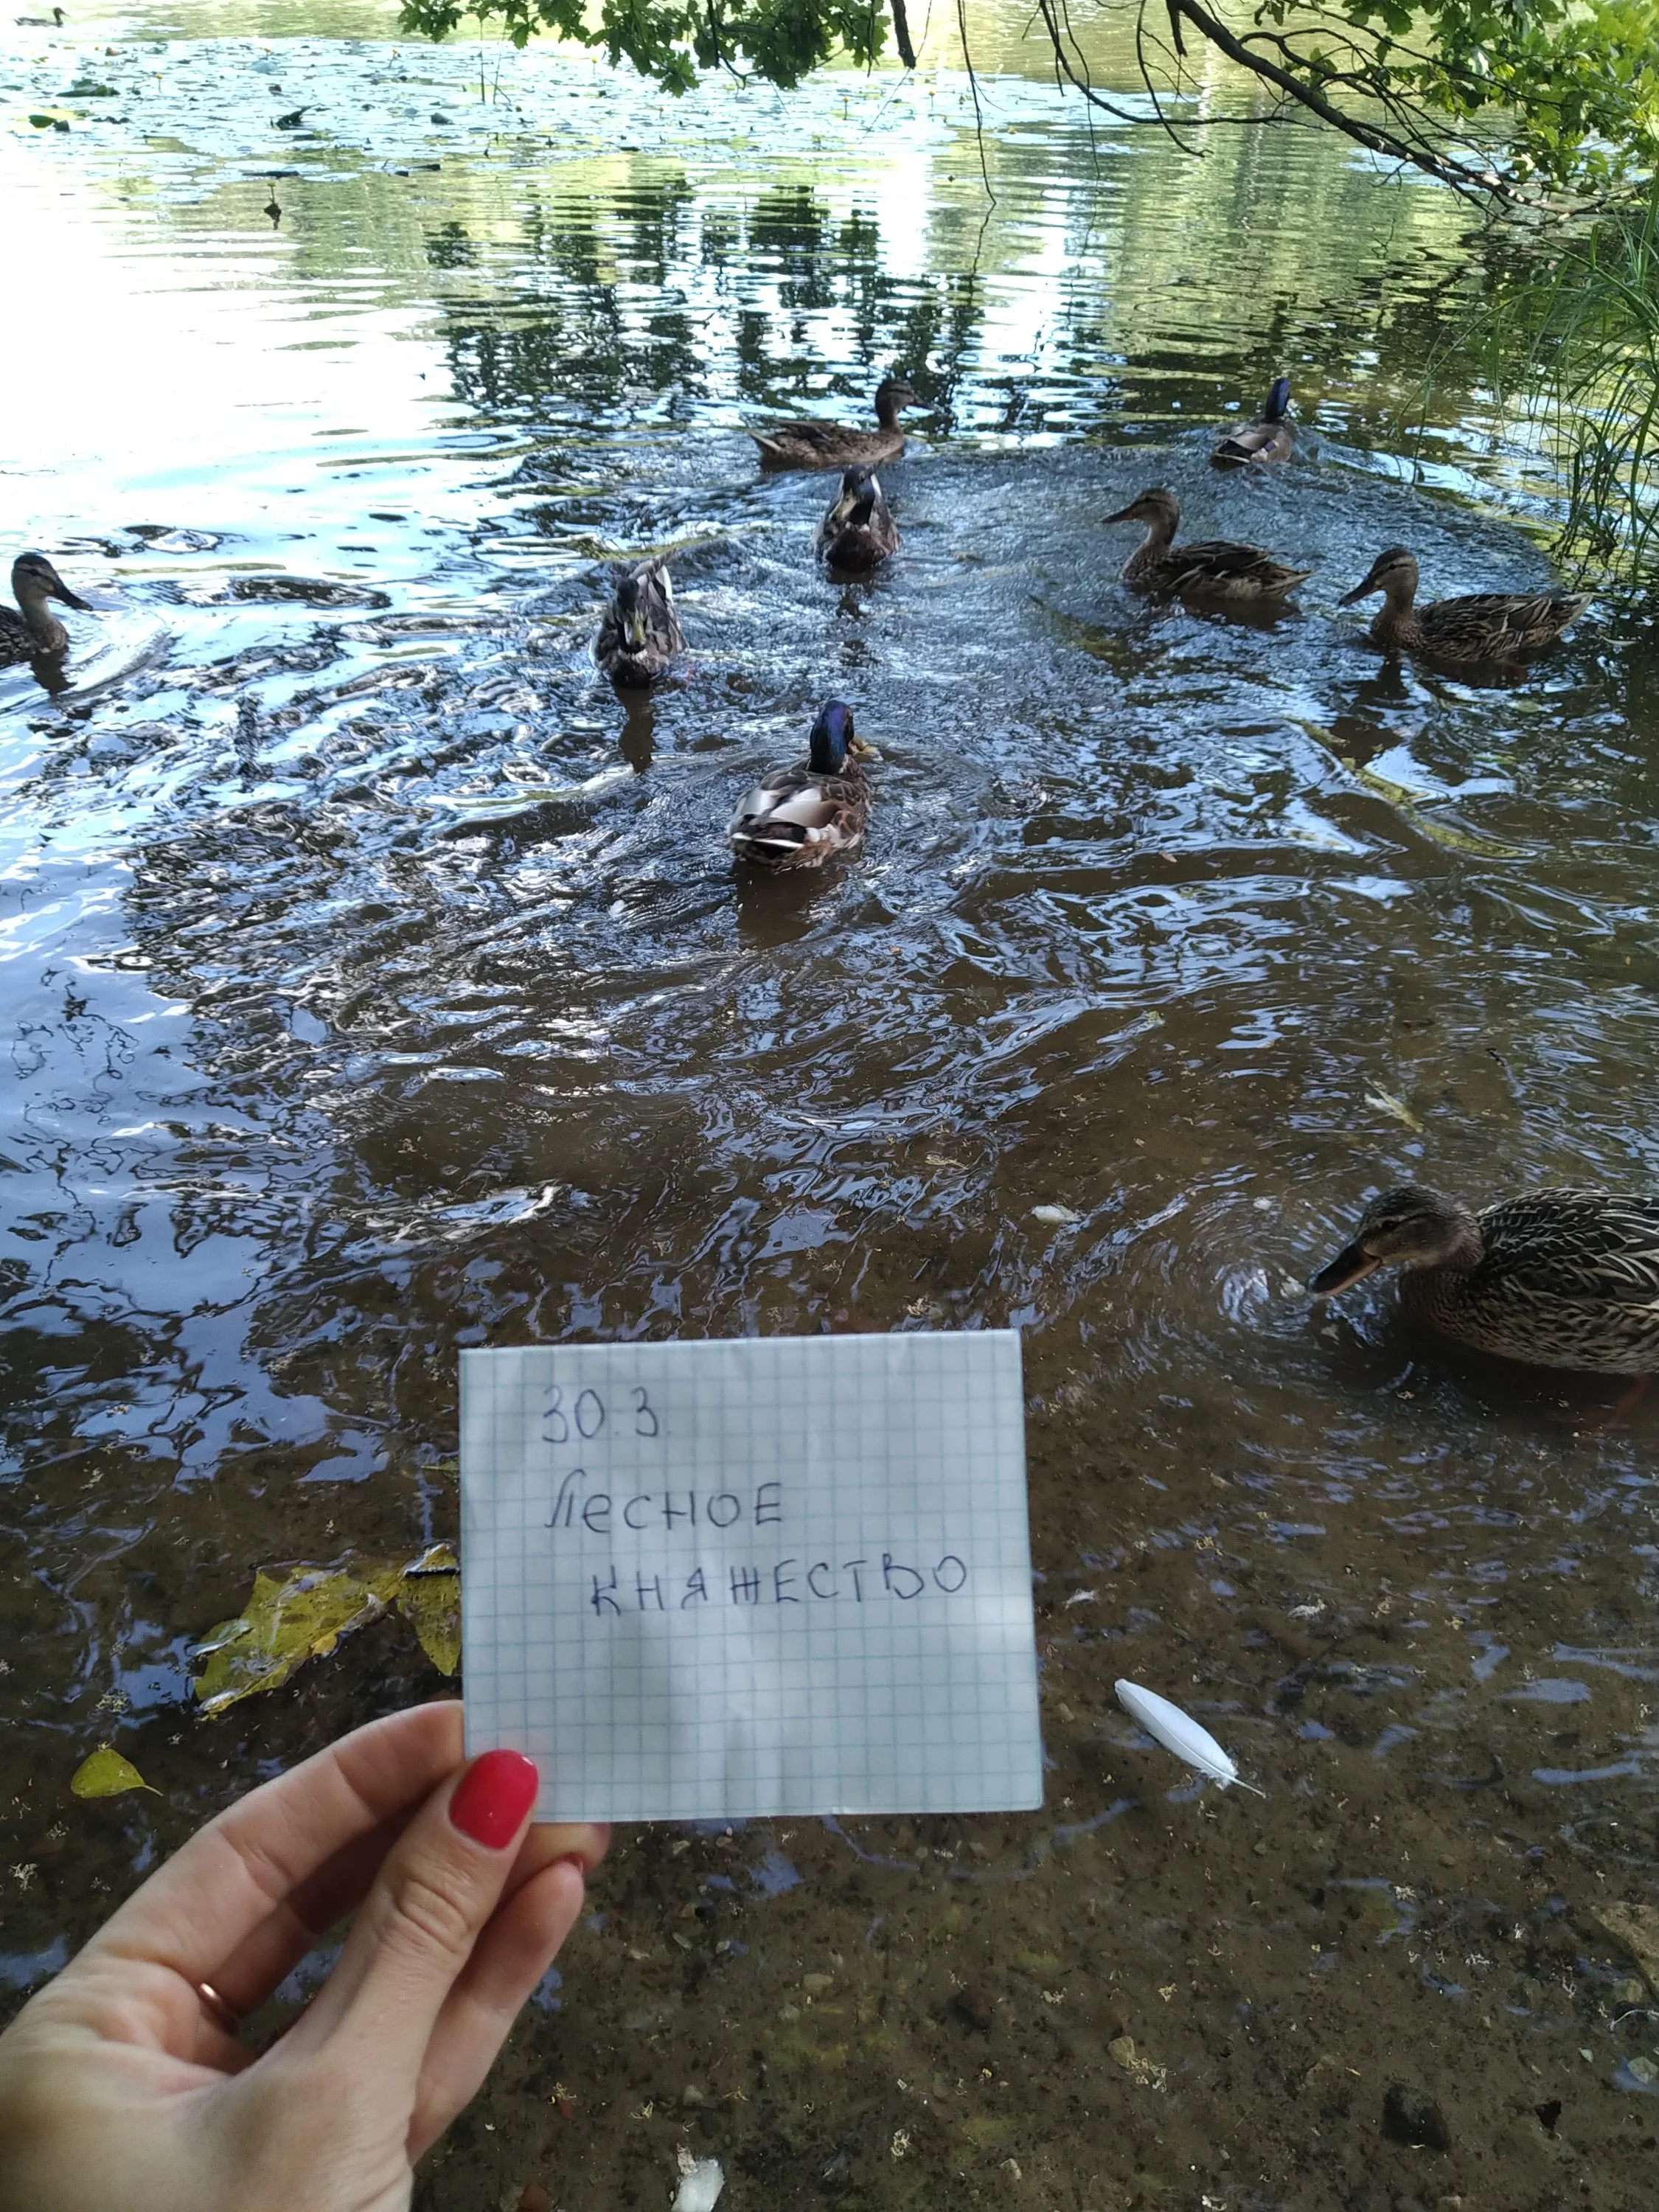 30.3.
Лесное
княжество